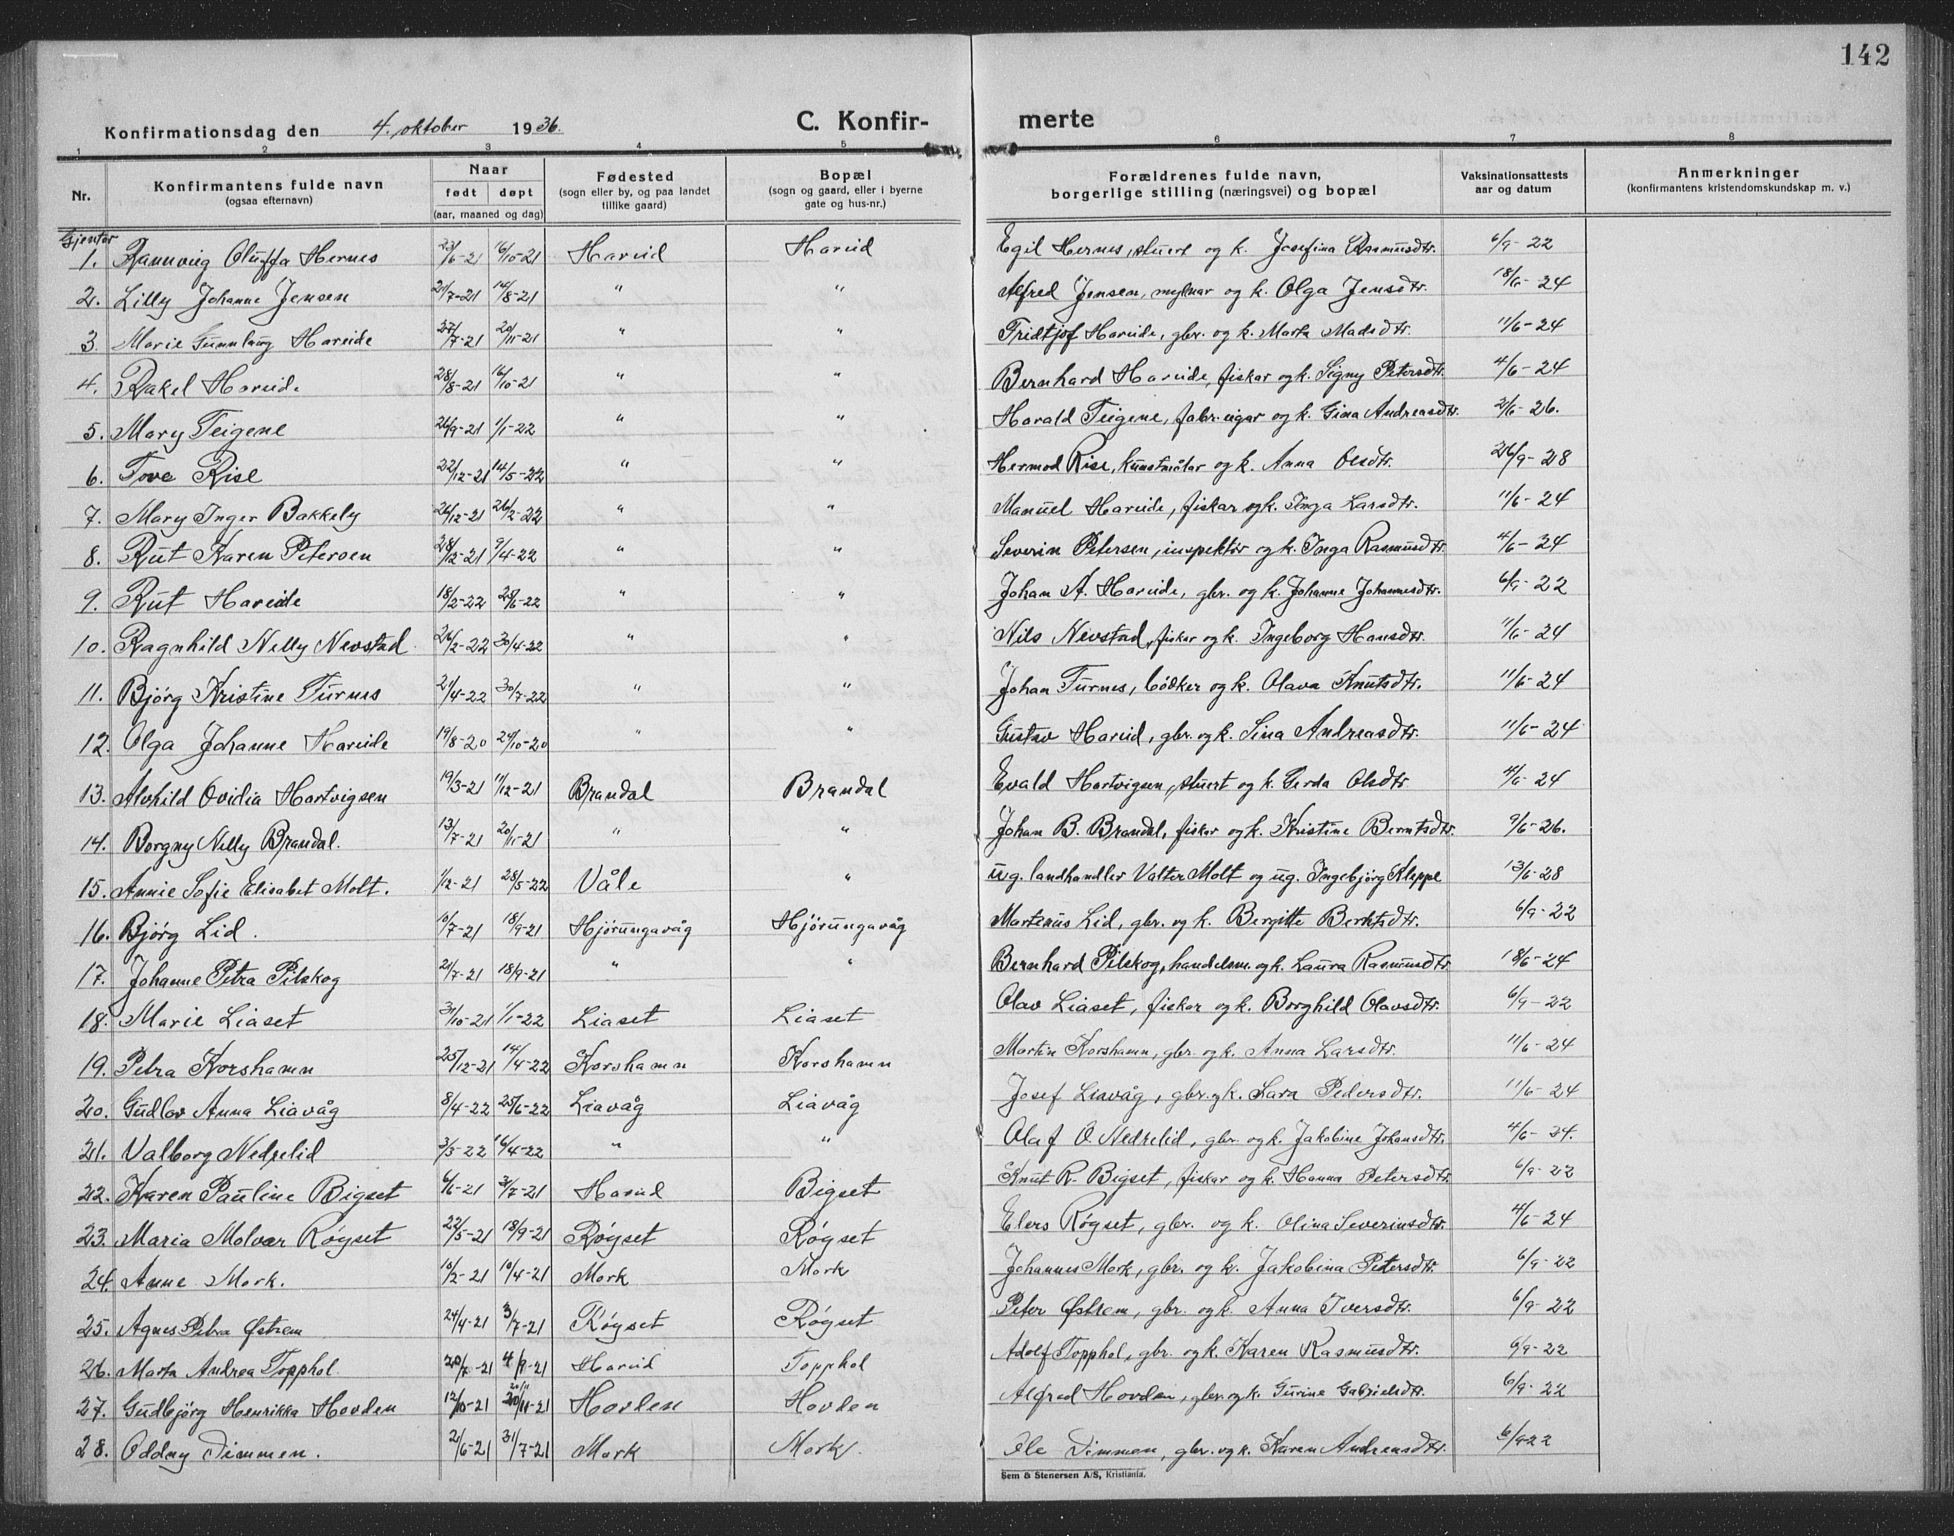 142
Konfirmationsdag den 4. oktober 1936. C. Konfir- merte
1 2 3 4 5 6 7 8
Nr. Konfirmantens fulde navn (ogsaa efternavn) Naar født døpt (aar, maaned og dag) Fødested (sogn eller by, og paa landet tillike gaard) Bopæl (sogn og gaard, eller i byerne gate og hus-nr.) Forældrenes fulde navn, borgerlige stilling (næringsvei) og bopæl Vaksinationsattests aar og datum Anmerkninger (konfirmantens kristendomskundskap m. v.)
Gjentor
1. Rannveig Oluffa Hernes 23/6-21 16/10-21 Hareid Hareid Egil Hernes, stuert og k. Josefina Rasmusdtr. 6/9-22
2. Lilly Johanne Jensen 21/7-21 14/8-21 " " Alfred Jensen, mylnar og k. Olga Jensdtr. 18/6-24
3. Marie Gunnlaug Hareide 27/7-21 20/11-21 " " Fridtjof Hareide, gbr. og k. Marta Madsdtr. 11/6-24
4. Rakel Hareide 28/8-21 16/10-21 " " Bernhard Hareide, fiskar og k. Signy Petersdtr. 4/6-24
5. Mary Teigene 26/9-21 1/1-22 " " Harald Teigene, fabr.eigar og k. Gina Andreasdtr. 2/6-26.
6. Tove Rise 22/12-21 14/5-22 " " Hermod Rise, kunstmålar og k. Anna Olsdtr. 26/9-28
7. Mary Inger Bakkely 26/12-21 26/2-22 " " Manuel Hareide, fiskar og k. Inga Larsdtr. 11/6-24
8. Rut Karen Petersen 28/12-21 9/4-22 " " Severin Petersen, inspektør og k. Inga Rasmusdtr. 4/6-24
9. Rut Hareide 18/2-22 25/6-22 " " Johan A. Hareide, gbr. og k. Johanne Johannesdtr. 6/9-22
10. Ragnhild Nelly Nevstad 26/2-22 30/4-22 " " Nils Nevstad, fiskar og k. Ingeborg Hansdtr. 11/6-24
11. Bjørg Kristine Furnes 21/4-22 30/7-22 " " Johan Furnes, bødker og k. Olava Knutsdtr. 11/6-24
12. Olga Johanne Hareide 19/8-20 24/10-20 " " Gustav Hareid, gbr. og k. Sina Andreasdtr. 11/6-24
13. Alvhild Ovidia Hartvigsen 19/3-21 11/12-21 Brandal Brandal Evald Hartvigsen, stuert og k. Gerda Olsdtr. 4/6-24
14. Borgny Nelly Brandal. 13/7-21 20/11-21 " " Johan B. Brandal, fiskar og k. Kristine Berntsdtr. 9/6-26.
15. Annie Sofie Elisabet Molt. 1/12-21 28/5-22 Våle " ug. landhandler Valter Molt og ug. Ingebjørg Kleppe 13/6-28
16. Bjørg Lid. 10/7-21 18/9-21 Hjørungavåg Hjørungavåg Martinus Lid, gbr. og k. Bergitte Berntsdtr. 6/9-22
17. Johanne Petra Pilskog 21/7-21 18/9-21 " " Bernhard Pilskog, handelsm. og k. Laura Rasmusdtr. 18/6-24
18. Marie Liaset 31/10-21 1/1-22 Liaset Liaset Olav Liaset, fiskar og k. Borghild Olavsdtr. 6/9-22
19. Petra Korshamn 25/12-21 14/4-22 Korshamn Korshamn Martin Korshamn, gbr. og k. Anna Larsdtr. 11/6-24
20. Gudlov Anna Liavåg 8/4-22 25/6-22 Liavåg Liavåg Josef Liavåg, gbr. og k. Lara Pedersdtr. 11/6-24
21. Valborg Nedrelid 3/3-22 16/4-22 " " Olaf O. Nedrelid, gbr. og k. Jakobine Johansdtr. 4/6-24.
22. Karen Pauline Bigset 6/6-21 31/7-21 Hareid Bigset Knut R. Bigset, fiskar og k. Hanna Petersdtr. 6/9-22
23. Maria Molvær Røyset 22/5-21 18/9-21 Røyset Røyset Elers Røyset, gbr. og k. Olina Severinsdtr. 4/6-24
24. Anne Mork. 10/2-21 10/4-21 Mork Mork Johannes Mork, gbr. og k. Jakobina Petersdtr. 6/9-22
25. Agnes Petra Østrem 24/4-21 3/7-21 Røyset Røyset Peter Østrem, gbr. og k. Anna Iversdtr. 6/9-22
26. Marta Andrea Topphol. 20/7-21 4/9-21 Hareid Topphol Adolf Topphol, gbr. og k. Karen Rasmusdtr. 6/9-22
27. Gudbjørg Henrikka Hovden 12/10-21 20/11-21 Hovden Hovden Alfred Hovden, gbr. og k. Gurine Gabrielsdtr. 6/9-22
28. Oddny Dimmen. 2/6-21 31/7-21 Mork Mork. Ole Dimmen, gbr. og k. Karen Andreasdtr. 6/9-22
Sem & Stenersen A/S, Kristiania.